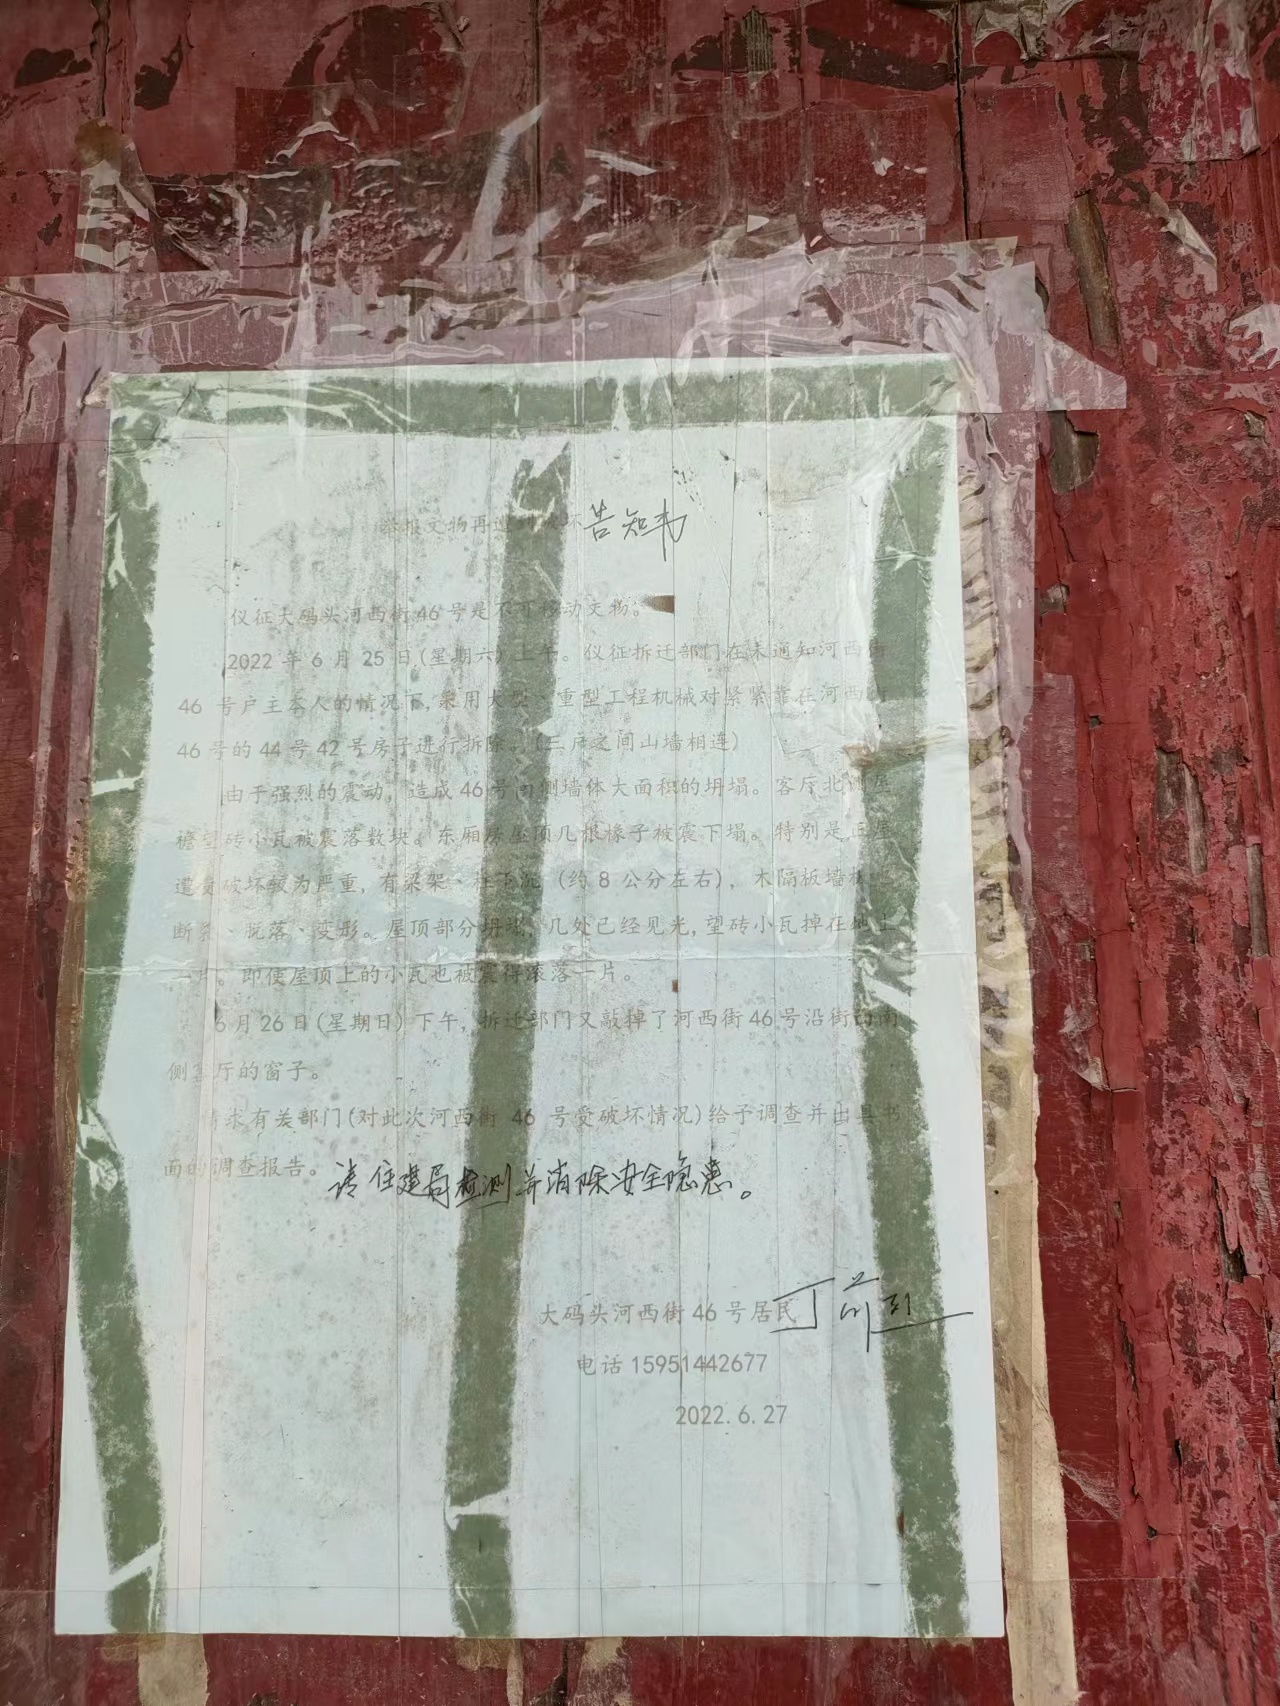 举报文物再遭到破坏告知书
仪征大码头河西街46号是不可移动文物。
2022年6月25日(星期六)上午。仪征拆迁部门在未通知河西街
46 号户主本人的情况下,采用大型、重型工程机械对紧紧靠在河西街
46号的44号42号房子进行拆除。(三户之间山墙相连)
由于强烈的震动,造成46号 侧墙体大面积的坍塌。客厅北 屋
檐望砖小瓦被震落数块。东厢房屋顶几根椽子被震下塌。特别是正屋
遭受破坏较为严重,有梁架、柱下沉(约8公分左右),木隔板墙
断裂、脱落、变形。屋顶部分坍塌,几处已经见光,望砖小瓦掉在地上
一片。即使屋顶上的小瓦也被震得滚落一片。
6月26日(星期日)下午,拆迁部门又敲掉了河西街46号沿街 南
侧客厅的窗子。
请求有关部门(对此次河西街 46 号受破坏情况)给予调查并出具书
面的调查报告。请住建局检测并消除安全隐患。
大码头河西街46号居民
电话15951442677
2022.6.27